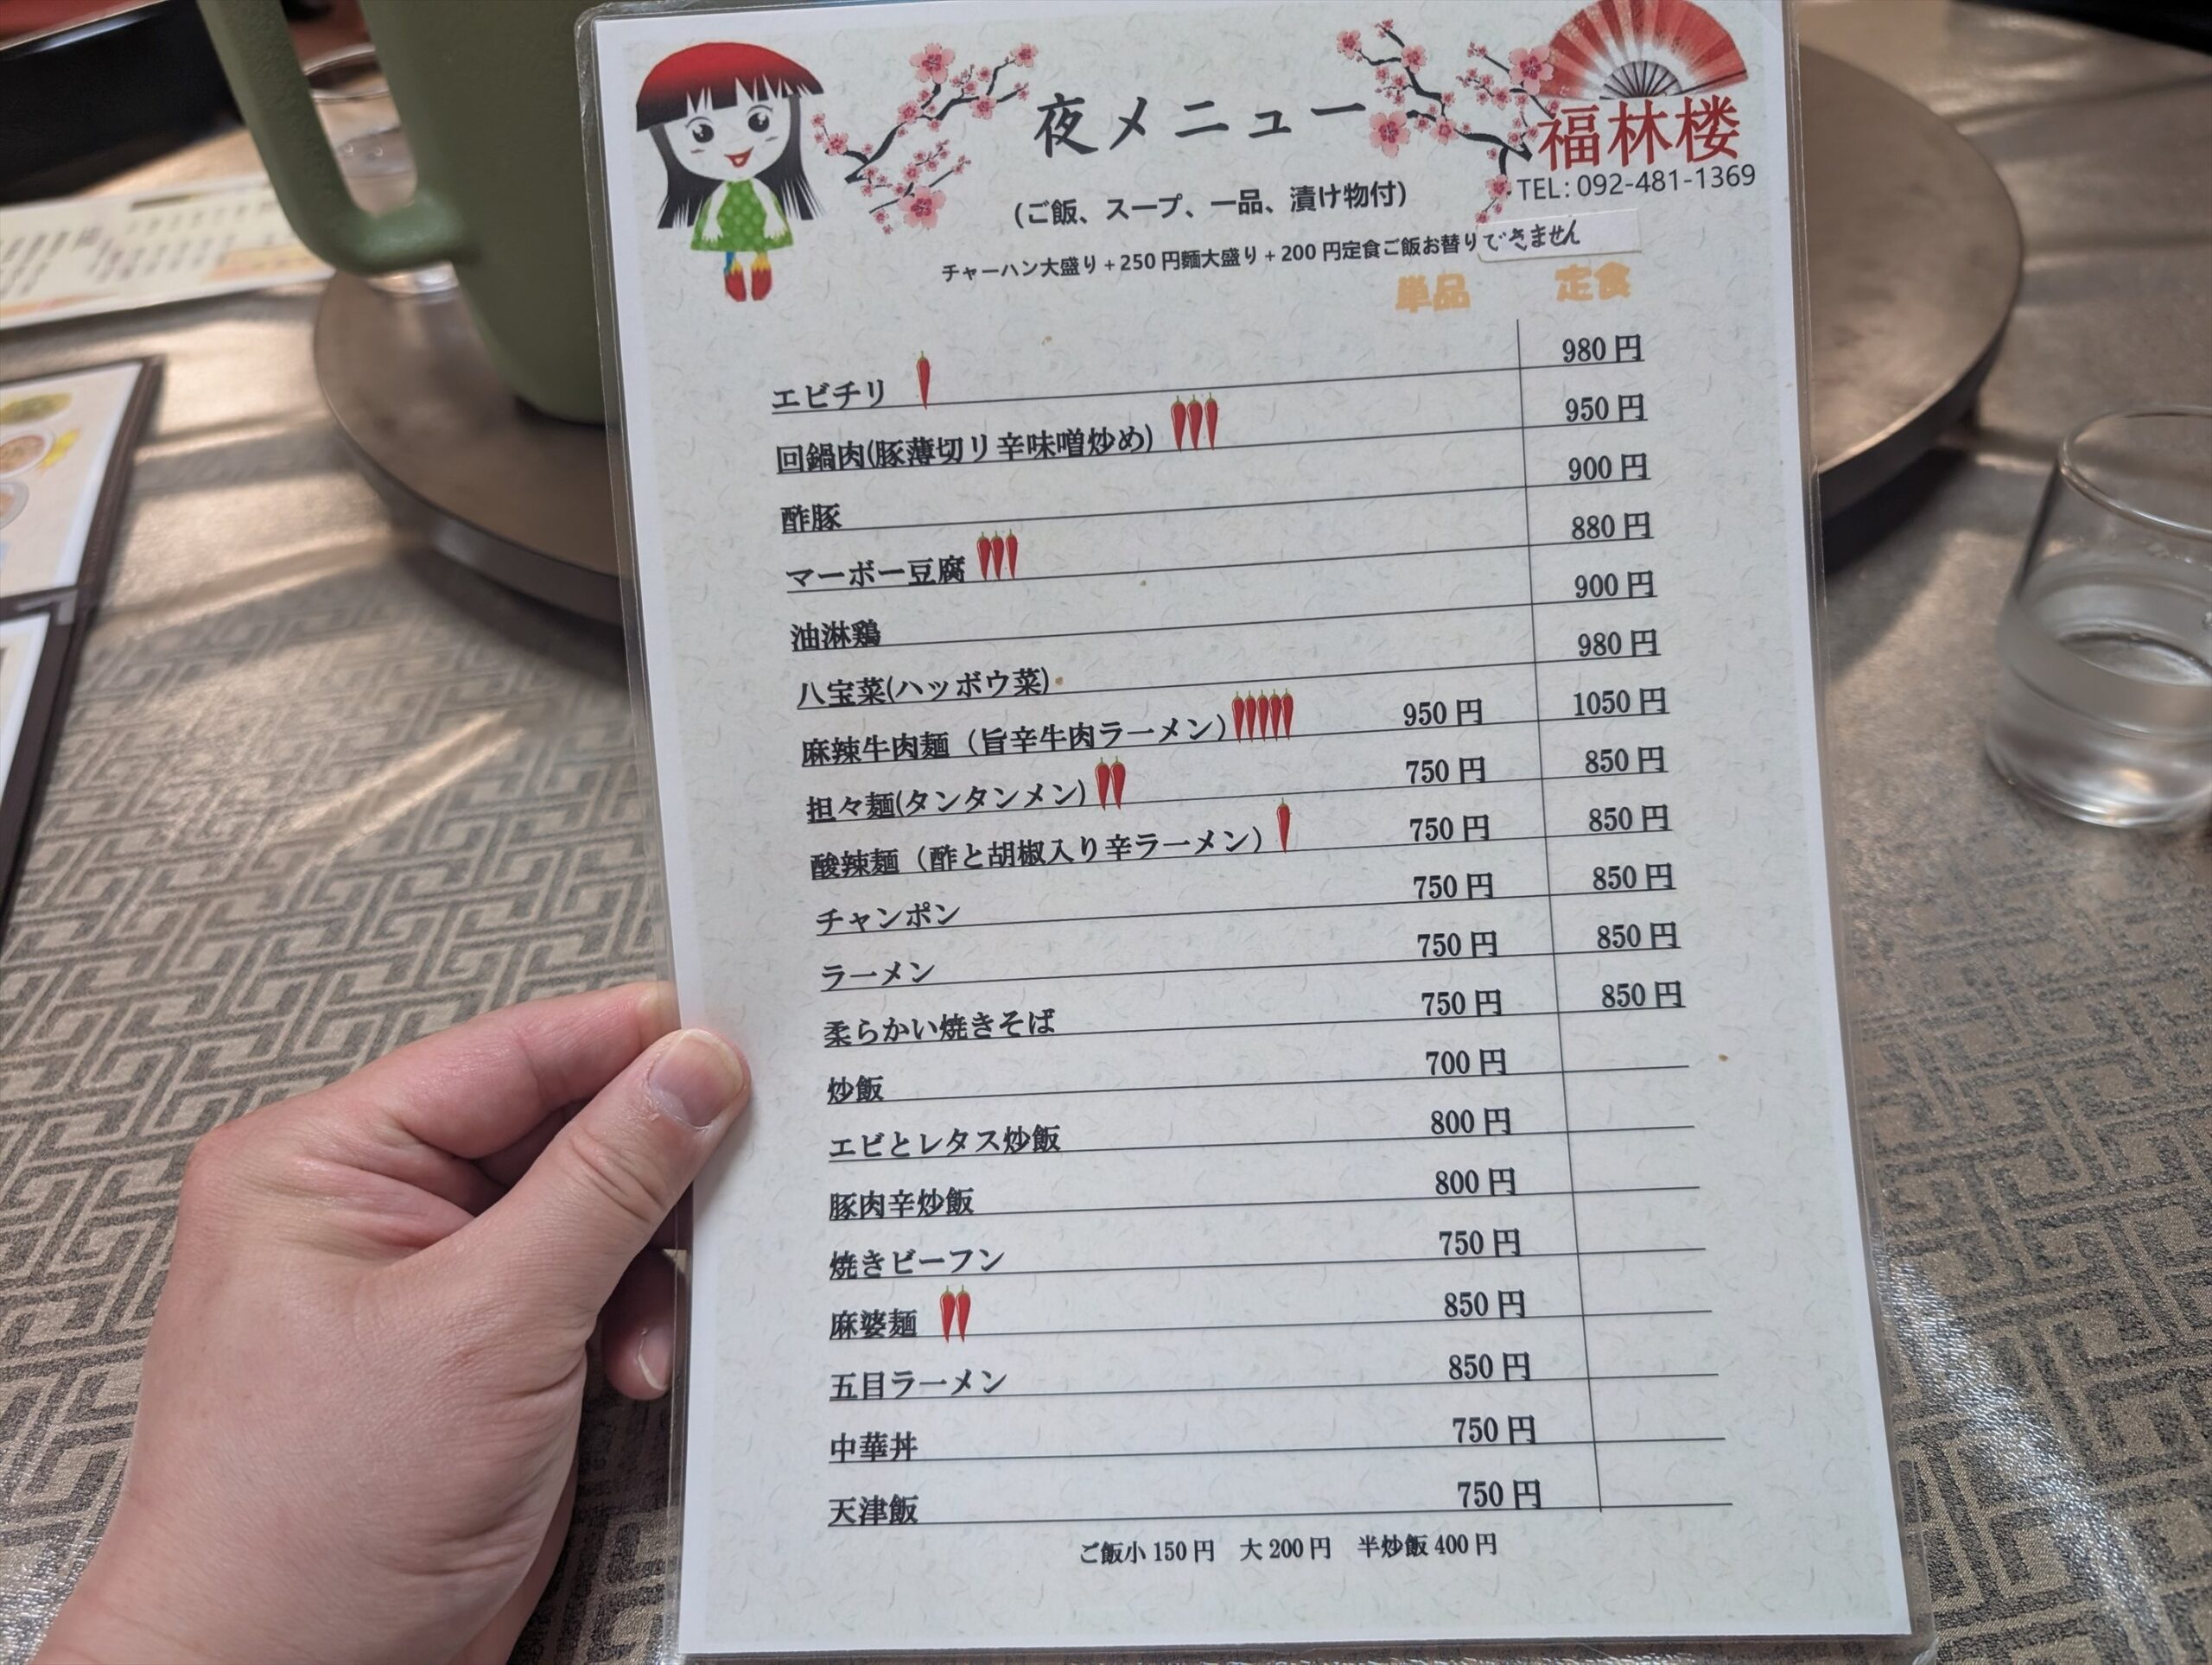 夜メニュー
福林楼
TEL:092-481-1369
(ご飯、スープ、一品、漬け物付)
チャーハン大盛り+250円麺大盛り+200円定食ご飯お替りできません
単品 定食
エビチリ 980円
回鍋肉(豚薄切リ辛味噌炒め) 950円
酢豚 900円
マーボー豆腐 880円
油淋鶏 900円
八宝菜(ハッボウ菜) 980円
麻辣牛肉麺(旨辛牛肉ラーメン) 950円 1050円
担々麺(タンタンメン) 750円 850円
酸辣麺(酢と胡椒入り辛ラーメン) 750円 850円
チャンポン 750円 850円
ラーメン 750円 850円
柔らかい焼きそば 750円 850円
炒飯 700円
エビとレタス炒飯 800円
豚肉辛炒飯 800円
焼きビーフン 750円
麻婆麺 850円
五目ラーメン 850円
中華丼 750円
天津飯 750円
ご飯小150円 大200円 半炒飯400円